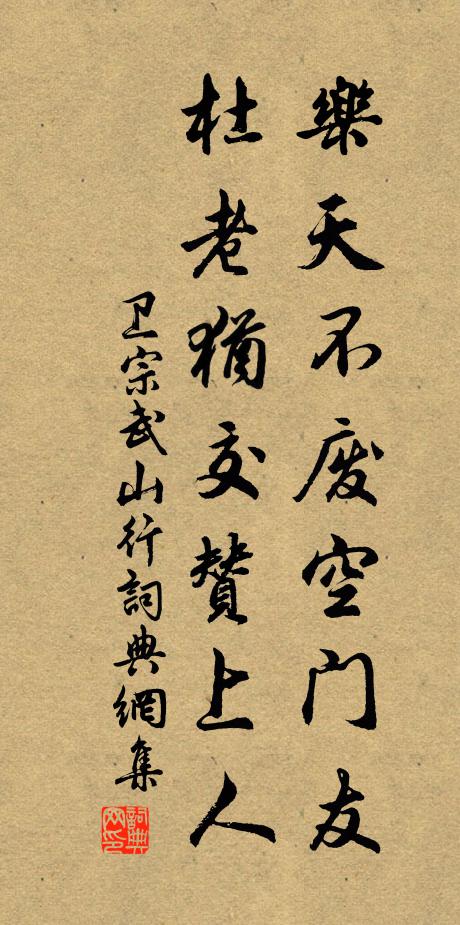 樂天不废空门友
杜老猶交贊上人
卫宗武山行詞典網集
詞典网印